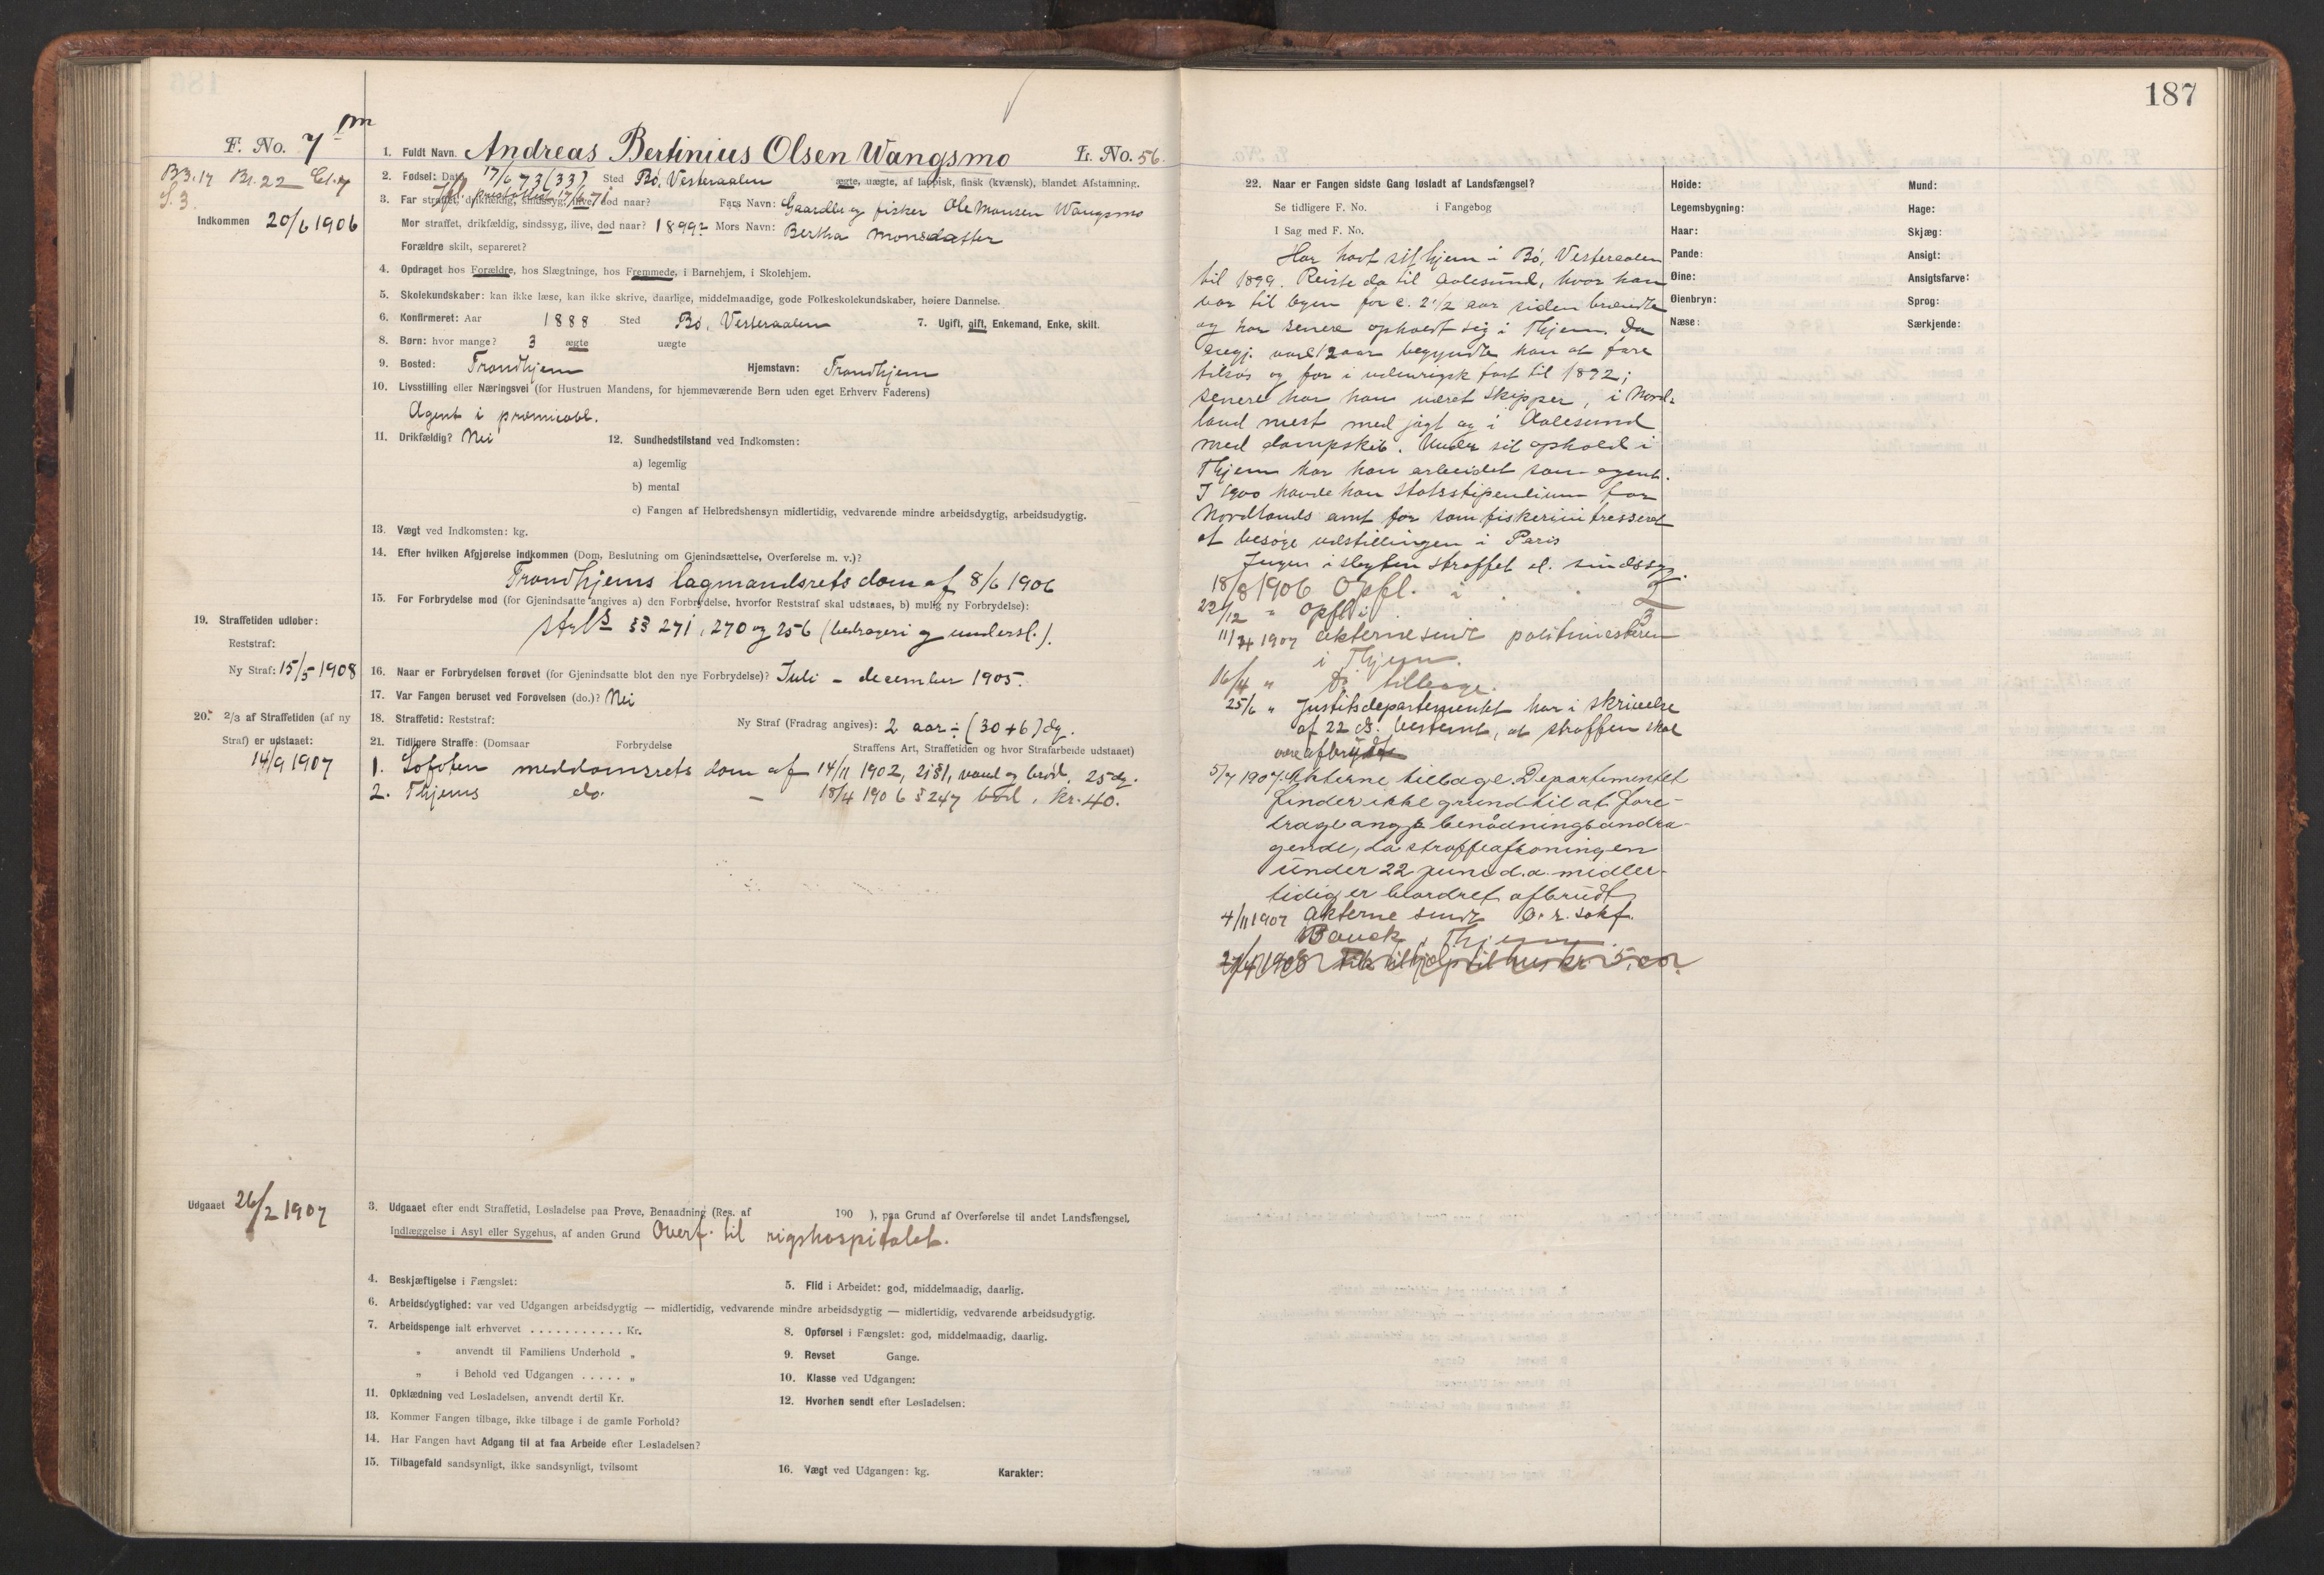 187
F. No. 7 m
B3.17 Bl.22 Cl.7
S.3.
Indkommen 20/6 1906
1. Fuldt Navn. Andreas Bertinius Olsen Wangsmo L. No. 56.
2. Fødsel: Dato 17/6 73 (33) Sted Bø, Vesteraalen ægte, uægte, af lappisk, finsk (kvænsk), blandet Afstamning.
Ifl. 17/6 71
3. Far straffet, drikfældig, sindssyg, ilive, død naar? Fars Navn: Gaardbr. og fisker Ole Monsen Wangsmo
Mor straffet, drikfældig, sindssyg, ilive, død naar? 1899? Mors Navn: Bertha Monsdatter
Forældre skilt, separeret?
4. Opdraget hos Forældre, hos Slægtninge, hos Fremmede, i Barnehjem, i Skolehjem.
5. Skolekundskaber: kan ikke læse, kan ikke skrive, daarlige, middelmaadige, gode Folkeskolekundskaber, høiere Dannelse.
6. Konfirmeret: Aar 1888 Sted Bø, Vesteraalen 7. Ugift, gift, Enkemand, Enke, skilt.
8. Børn: hvor mange? 3 ægte uægte
9. Bosted: Trondhjem Hjemstavn: Trondhjem
10. Livsstilling eller Næringsvei (for Hustruen Mandens, for hjemmeværende Børn uden eget Erhverv Faderens)
Agent i præmieobl.
11. Drikfældig? Nei 12. Sundhedstilstand ved Indkomsten:
a) legemlig
b) mental
c) Fangen af Helbredshensyn midlertidig, vedvarende mindre arbeidsdygtig, arbeidsudygtig.
13. Vægt ved Indkomsten: kg.
14. Efter hvilken Afgjørelse indkommen (Dom, Beslutning om Gjenindsættelse, Overførelse m. v.)?
Trondhjems lagmandsrets dom af 8/6 1906
15. For Forbrydelse mod (for Gjenindsatte angives a) den Forbrydelse, hvorfor Reststraf skal udstaaes, b) mulig ny Forbrydelse):
Strl's §§ 271, 270 og 256 (bedrageri og undersl.).
19. Straffetiden udløber:
Reststraf:
Ny Straf: 15/5 1908
16. Naar er Forbrydelsen forøvet (for Gjenindsatte blot den nye Forbrydelse)? Juli – december 1905.
17. Var Fangen beruset ved Forøvelsen (do.)? Nei
20. 2/3 af Straffetiden (af ny Straf) er udstaaet:
14/9 1907
18. Straffetid: Reststraf: Ny Straf (Fradrag angives): 2 aar ÷ (30+6) dg.
21. Tidligere Straffe: (Domsaar Forbrydelse Straffens Art, Straffetiden og hvor Strafarbeide udstaaet)
1. Lofoten meddomsrets dom af 14/11 1902, 21 § 1, vand og brød, 25 dg.
2. Thjems do. – 18/4 1906 § 247 bød. kr. 40.
Udgaaet 26/2 1907
3. Udgaaet efter endt Straffetid, Løsladelse paa Prøve, Benaadning (Res. af 190 ), paa Grund af Overførelse til andet Landsfængsel,
Indlæggelse i Asyl eller Sygehus, af anden Grund Overf. til rigshospitalet.
4. Beskjæftigelse i Fængslet: 5. Flid i Arbeidet: god, middelmaadig, daarlig.
6. Arbeidsdygtighed: var ved Udgangen arbeidsdygtig — midlertidig, vedvarende mindre arbeidsdygtig — midlertidig, vedvarende arbeidsudygtig.
7. Arbeidspenge ialt erhvervet . . . . . . . . . . . Kr. 8. Opførsel i Fængslet: god, middelmaadig, daarlig.
„ anvendt til Familiens Underhold „ 9. Revset Gange.
„ i Behold ved Udgangen . . . . . „ 10. Klasse ved Udgangen:
11. Opklædning ved Løsladelsen, anvendt dertil Kr. 12. Hvorhen sendt efter Løsladelsen:
13. Kommer Fangen tilbage, ikke tilbage i de gamle Forhold?
14. Har Fangen havt Adgang til at faa Arbeide efter Løsladelsen?
15. Tilbagefald sandsynligt, ikke sandsynligt, tvilsomt 16. Vægt ved Udgangen: kg. Karakter:
22. Naar er Fangen sidste Gang løsladt af Landsfængsel?
Se tidligere F. No. i Fangebog
I Sag med F. No.
Har havt sit hjem i Bø, Vesteraalen
til 1899. Reiste da til Aalesund, hvor han
var til byen for c. 2 1/2 aar siden brændte
og har senere opholdt sig i Thjem. Da
12 aar begyndte han at fare
tilsøs og for i udenrigsk fart til 1892;
senere har han været skipper, i Nord-
land mest med jagt og i Aalesund
med dampskib. Under sit ophold i
Thjem har han arbeidet som agent.
I 1900 havde han statsstipendium for
Nordlands amt for som fiskeriinteresseret
at besøge udstillingen i Paris
Ingen i slegten straffet el. sindssyg.
18/8 1906 Opfl. i 2
22/12 " Opfl. i 3
11/4 1907 akterne sendt politimesteren
i Thjem.
16/4 " Do tilbage.
25/6 " Justitsdepartementet har i skrivelse
af 22 ds. bestemt, at straffen skal
være afbrudt
5/7 1907. Akterne tilbage. Departementet
finder ikke grund til at fore-
drage ang. benådningsandra-
gende, da straffeafsoningen
under 22 juni d.a. midler-
tidig er beordret afbrudt
4/11 1907 Akterne sendt o. r. sakf.
Bauck, Thjem.
27/4 1908 Fik til hjælp til husl. kr. 5,00.
Høide:
Legemsbygning:
Haar:
Pande:
Øine:
Øienbryn:
Næse:
Mund:
Hage:
Skjæg:
Ansigt:
Ansigtsfarve:
Sprog:
Særkjende: